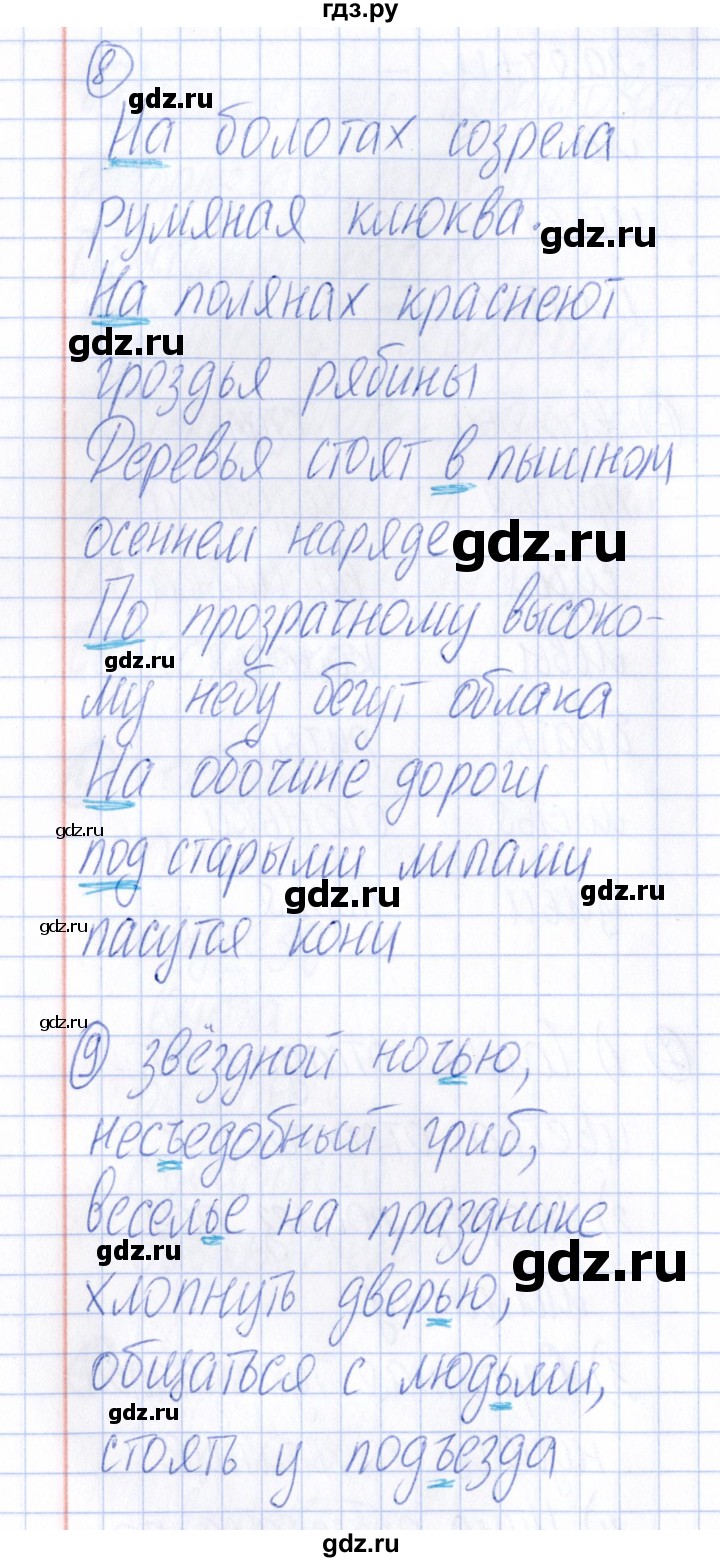 гдз.ру
8
gdz.ru
На болотах созрела
румяная клюква.
gdz.ru
На полянах краснеют
gdz.ru
гроздья рябины
Деревья стоят в пышном
осеннем наряде
gdz.ru
По прозрачному высоко-
gdz.ru
му небу бегут облака
На обочине дороги
gdz.ru
под старыми липами
gdz.ru
gdz.ru
gdz.ru
пасутся кони
gdz.ru
9 звёздной ночью,
несъедобный гриб,
веселье на празднике
gdz.ru
gdz.ru
хлопнуть дверью,
общаться с людьми,
gdz.ru
стоять у подъезда
gdz.ru